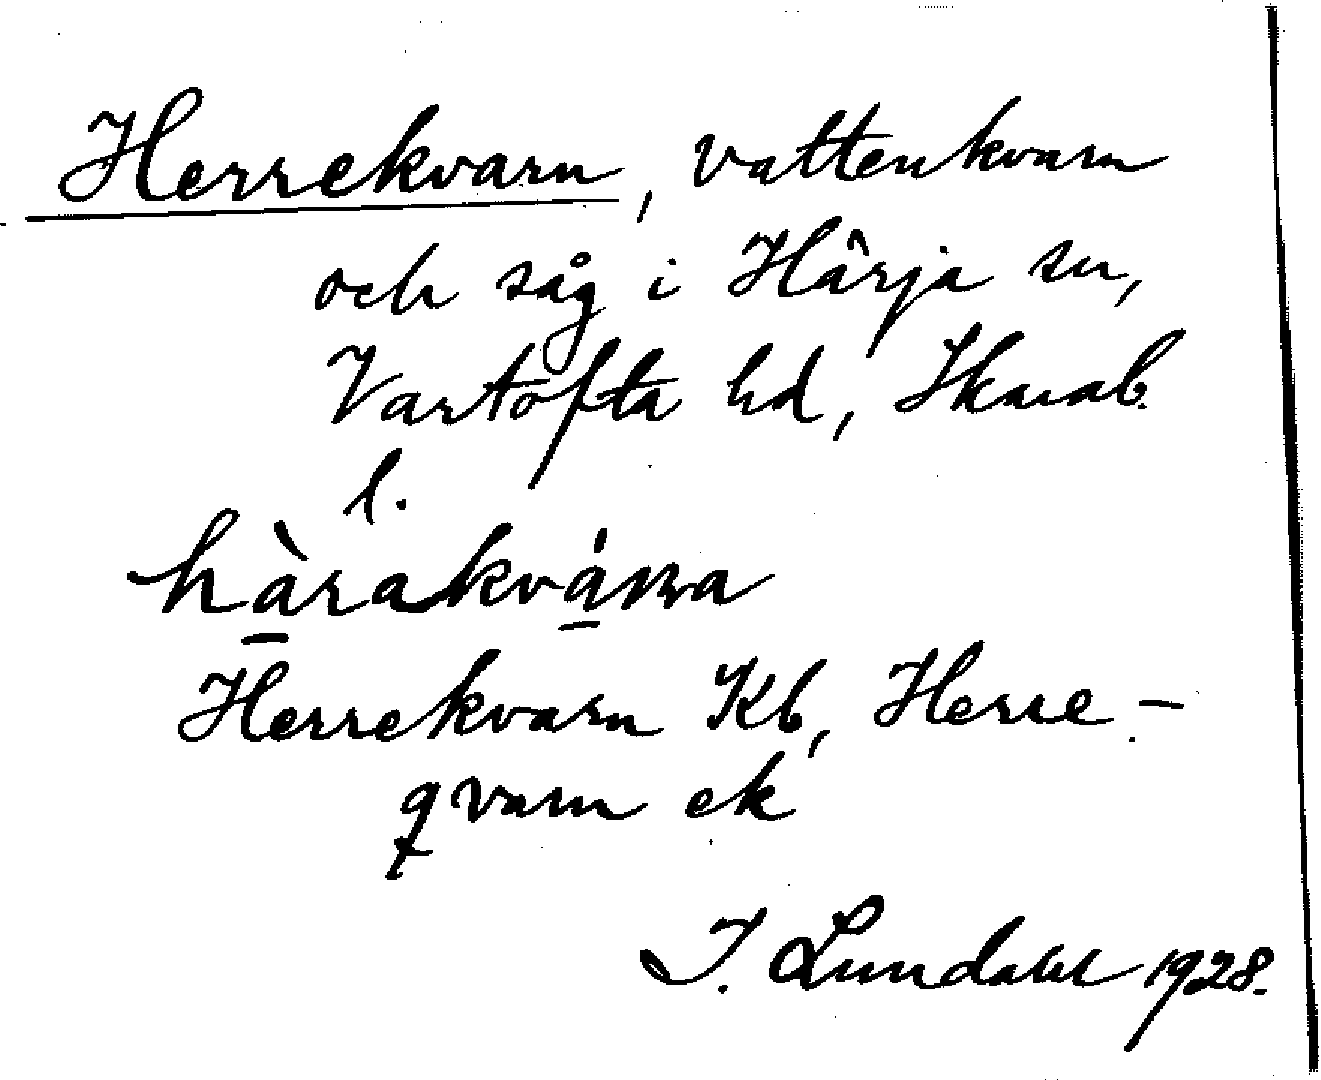 Herrekvarn, vattenkvarn
och såg i Hârja sn,
Vartofta hd, Skarab.
l.
hàrakvána
Herrekvarn Kb, Herre-
qvarn ek
I. Lundahl 1928.